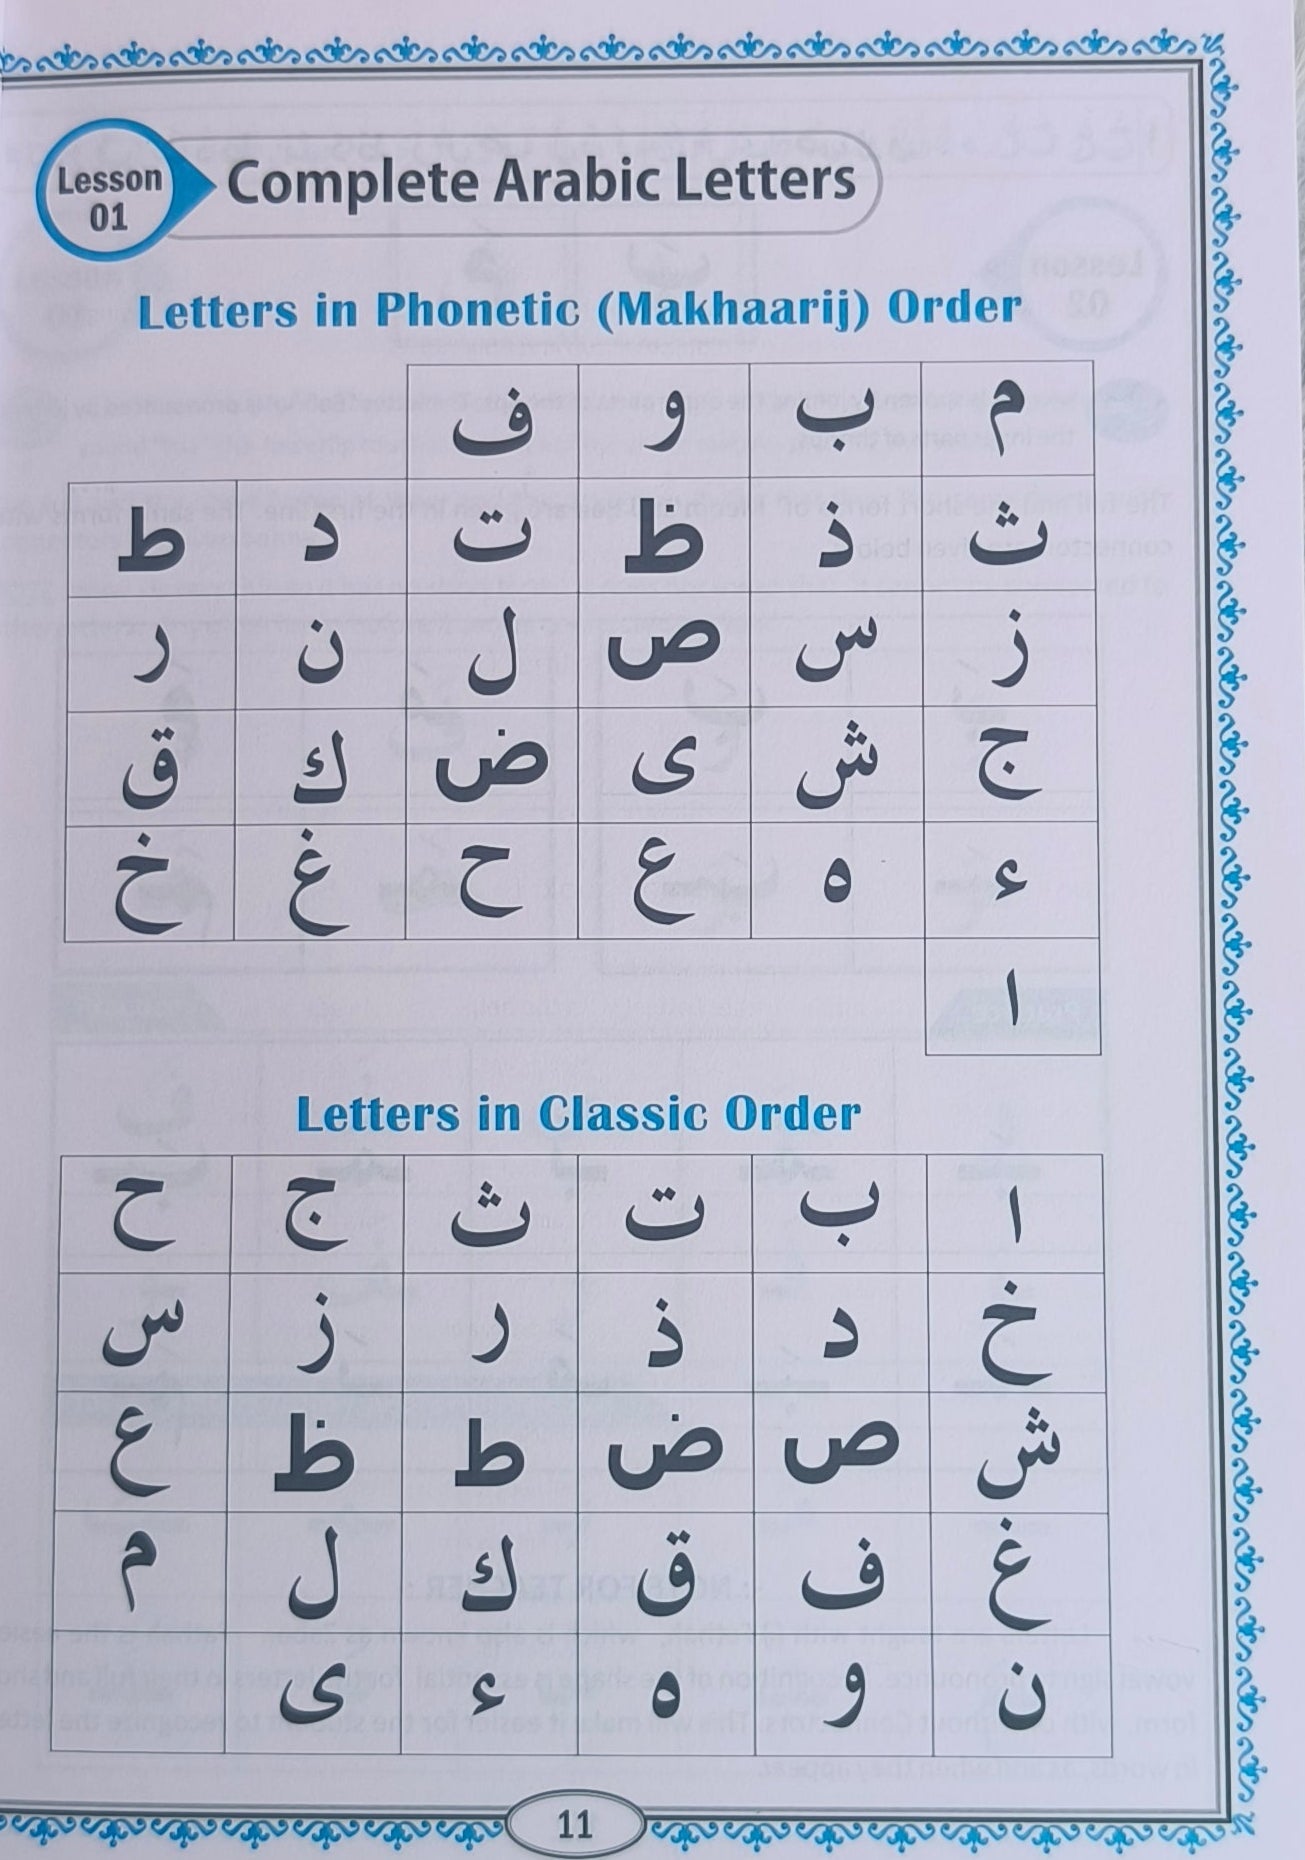 Lesson
01
Complete Arabic Letters
Letters in Phonetic (Makhaarij) Order
م ب و ف
ث ذ ظ ت د ط
ز س ص ل ن ر
ج ش ى ض ك ق
ء ه ع ح غ خ
ا
Letters in Classic Order
ا ب ت ث ج ح
خ د ذ ر ز س
ش ص ض ط ظ ع
غ ف ق ك ل م
ن و ه ء ى
11